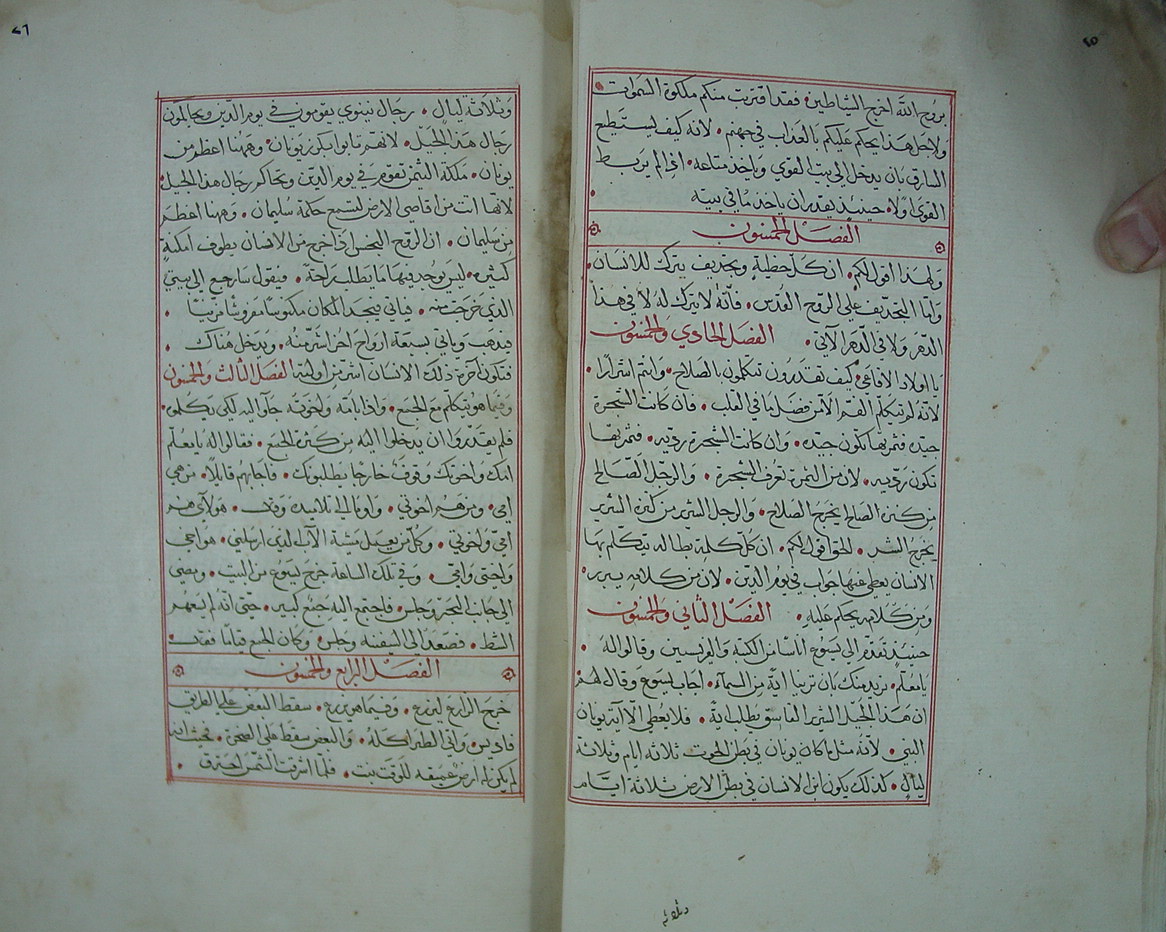 ٤٥
بروح الله اخرج الشياطين فقد اقتربت منكم ملكوة السموات
ولاجل هذا يحكم عليكم بالعذاب في جهنم لانه كيف يستطيع
السارق بان يدخل الي بيت القوي وياخد متاعه ان لم يربط
القوي اولا حينيذ يقدر ان ياخد ما في بيته
الفصل الخمسون
ولهدا اقول لكم ان كل خطية وتجديف يترك للانسان
واما التجديف علي الروح القدس فانه لا يترك له لا في هذا
الدهر ولا في الدهر الاتي الفصل الحادي والخمسون
يا اولاد الافاعي كيف تقدرون تتكلمون بالصلاح وانتم اشرارا
لانه لم يتكلم الفم الا من فضل ما في القلب فان كانت الشجرة
جيده فثمرتها تكون جيده وان كانت الشجرة رديه فثمرتها
تكون رديه لان من الثمرة تعرف الشجرة والرجل الصالح
من كنزه الصالح يخرج الصلاح والرجل الشرير من كنزه الشرير
يخرج الشر الحق اقول لكم ان كل كلمة بطاله يتكلم بها
الانسان يعطي عنها جواب في يوم الدين لان من كلامه يبرر
ومن كلامه يحكم عليه الفصل الثاني والخمسون
حينيد تقدم الي يسوع اناسا من الكتبة والفريسيين وقالوا له
يا معلم نريد منك بان ترينا اية من السماء اجاب يسوع وقال لهم
ان هذا الجيل الشرير الفاسق يطلب اية فلا يعطي الا اية يونان
النبي لانه مثل ما كان يونان في بطن الحوت ثلاثه ايام وثلاثة
ليال كذلك يكون ابن الانسان في بطن الارض ثلاثة ايام
وثلاثة
٤٦
وثلاثة ليال رجال نينوي يقومون في يوم الدين ويحاكمون
رجال هذا الجيل لانهم تابوا بكرز يونان وههنا اعظم من
يونان ملكة التيمن تقوم في يوم الدين وتحاكم رجال هذا الجيل
لانها اتت من اقاصي الارض لتسمع حكمة سليمان وههنا اعظم
من سليمان ان الروح النجس اذا خرج من الانسان يطوف امكنة
كثيره ليس يوجد فيها ما يطلب راحة فيقول سارجع الي بيتي
الذي خرجت منه فياتي فيجد المكان مكنوسا مفروشا مزينا
فيذهب وياتي بسبعة ارواح اخر اشر منه ويدخل هناك
فتكون اخرة ذلك الانسان اشر من اوليته الفصل الثالث والخمسون
وفيما هو يتكلم مع الجمع واذا بامه واخوته جاوا اليه لكي يكلموه
فلم يقدروا ان يدخلوا اليه من كثرة الجمع فقالوا له يا معلم
امك واخوتك وقوف خارجا يطلبونك فاجابهم قايلا من هي
امي ومن هم اخوتي واوما الي تلاميده وقال هولاي هم
امي واخوتي وكل من يعمل مشية الاب الذي ارسلني هو اخي
واختي وامي وفي تلك الساعة خرج يسوع من البيت ومضي
الي جانب البحر وجلس فاجتمع اليه جمع كبير حتي انه لم يسعهم
الشط فصعد الي السفينه وجلس وكان الجمع قياما
الفصل الرابع والخمسون
خرج الزارع ليزرع وفيما هو يزرع سقط البعض علي الطريق
واتي الطير اكله والبعض سقط علي الصخرة بحيث انه
لم يكن له ارض عميقه للوقت نبت فلما اشرقت الشمس احترق